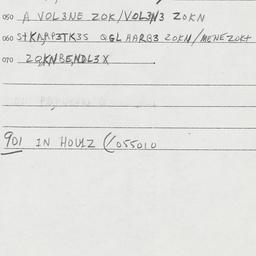 050 A VOL3NE ZOK/VOL3N3 ZOKN
060 S+KAAP3TK3S QGL AARB3 ZOKN/MENEZOK+
070 ZOKNBENDL3X
901 IN HOULZ (/055010